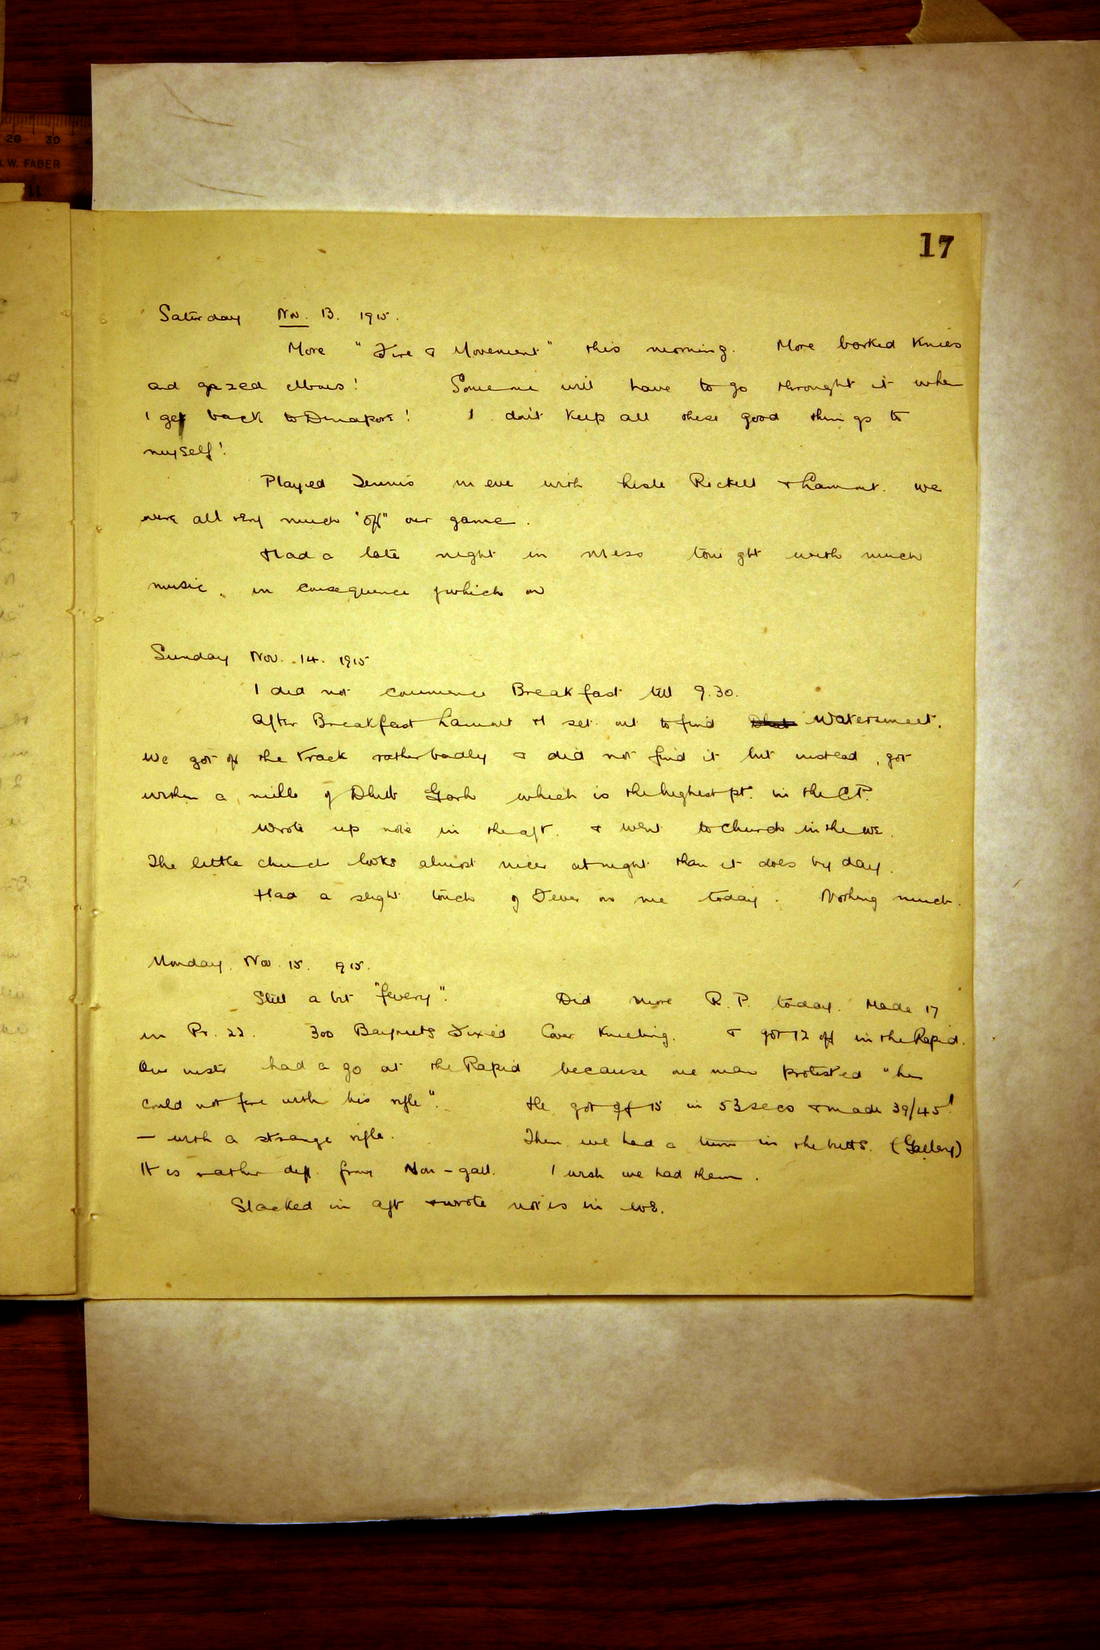 17
Saturday Nov. 13. 1915.
More "Fire & Movement" this morning. More barked knees
and gazed elbows! Someone will have to go throught it when
I get back to Dinapore! I don't keep all these good things to
myself!
Played Tennis in eve with Rickett & Lamont. We
were all very much "off" our game.
Had a late night in Mess tonight with much
music, in consequence of which on
Sunday Nov. 14. 1915
I did not commence Breakfast till 9.30.
After Breakfast Lamont & I set out to find Watersmeet.
We got off the track rather badly & did not find it but instead, got
within a mile of Dhub Garh which is the highest pt. in the C.P.
Wrote up note in the aft. & went to church in the eve.
The little church looks almost nicer at night than it does by day.
Had a slight touch of Fever on me today. Nothing much.
Monday. Nov 15. 1915.
Still a bit "fevery". Did more R.P. today. Made 17
in Pr. 22. 300 Bayonets Fixed Cover Kneeling. & got 12 off in the Rapid.
Our had a go at the Rapid because one man protested "he
could not fire with his rifle". He got off 15 in 53 secs & made 39/45!
— with a strange rifle. Then we had a turn in the butts. (Gallery)
It is rather diff. from Non-gall. I wish we had them.
Slacked in aft & wrote notes in eve.
20 30
W. FABER